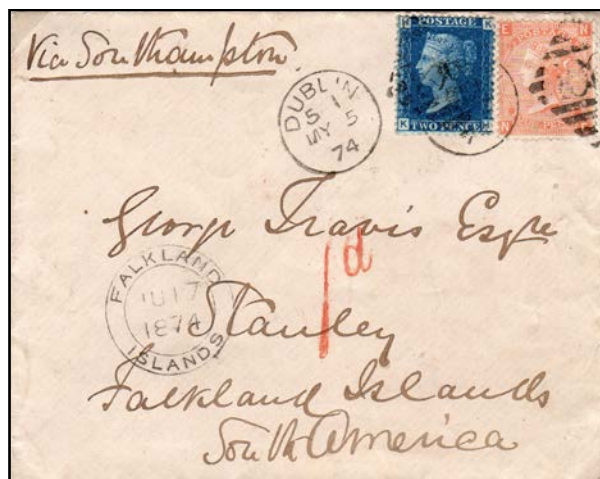 Via Southampton
K POSTAGE K
K TWO PENCE K
E N
N
DUBLIN
5 1
MY 5
74
George Travis Esqre
1d
FALKLAND
JU 17
1874
ISLANDS
Stanley
Falkland Islands
South America